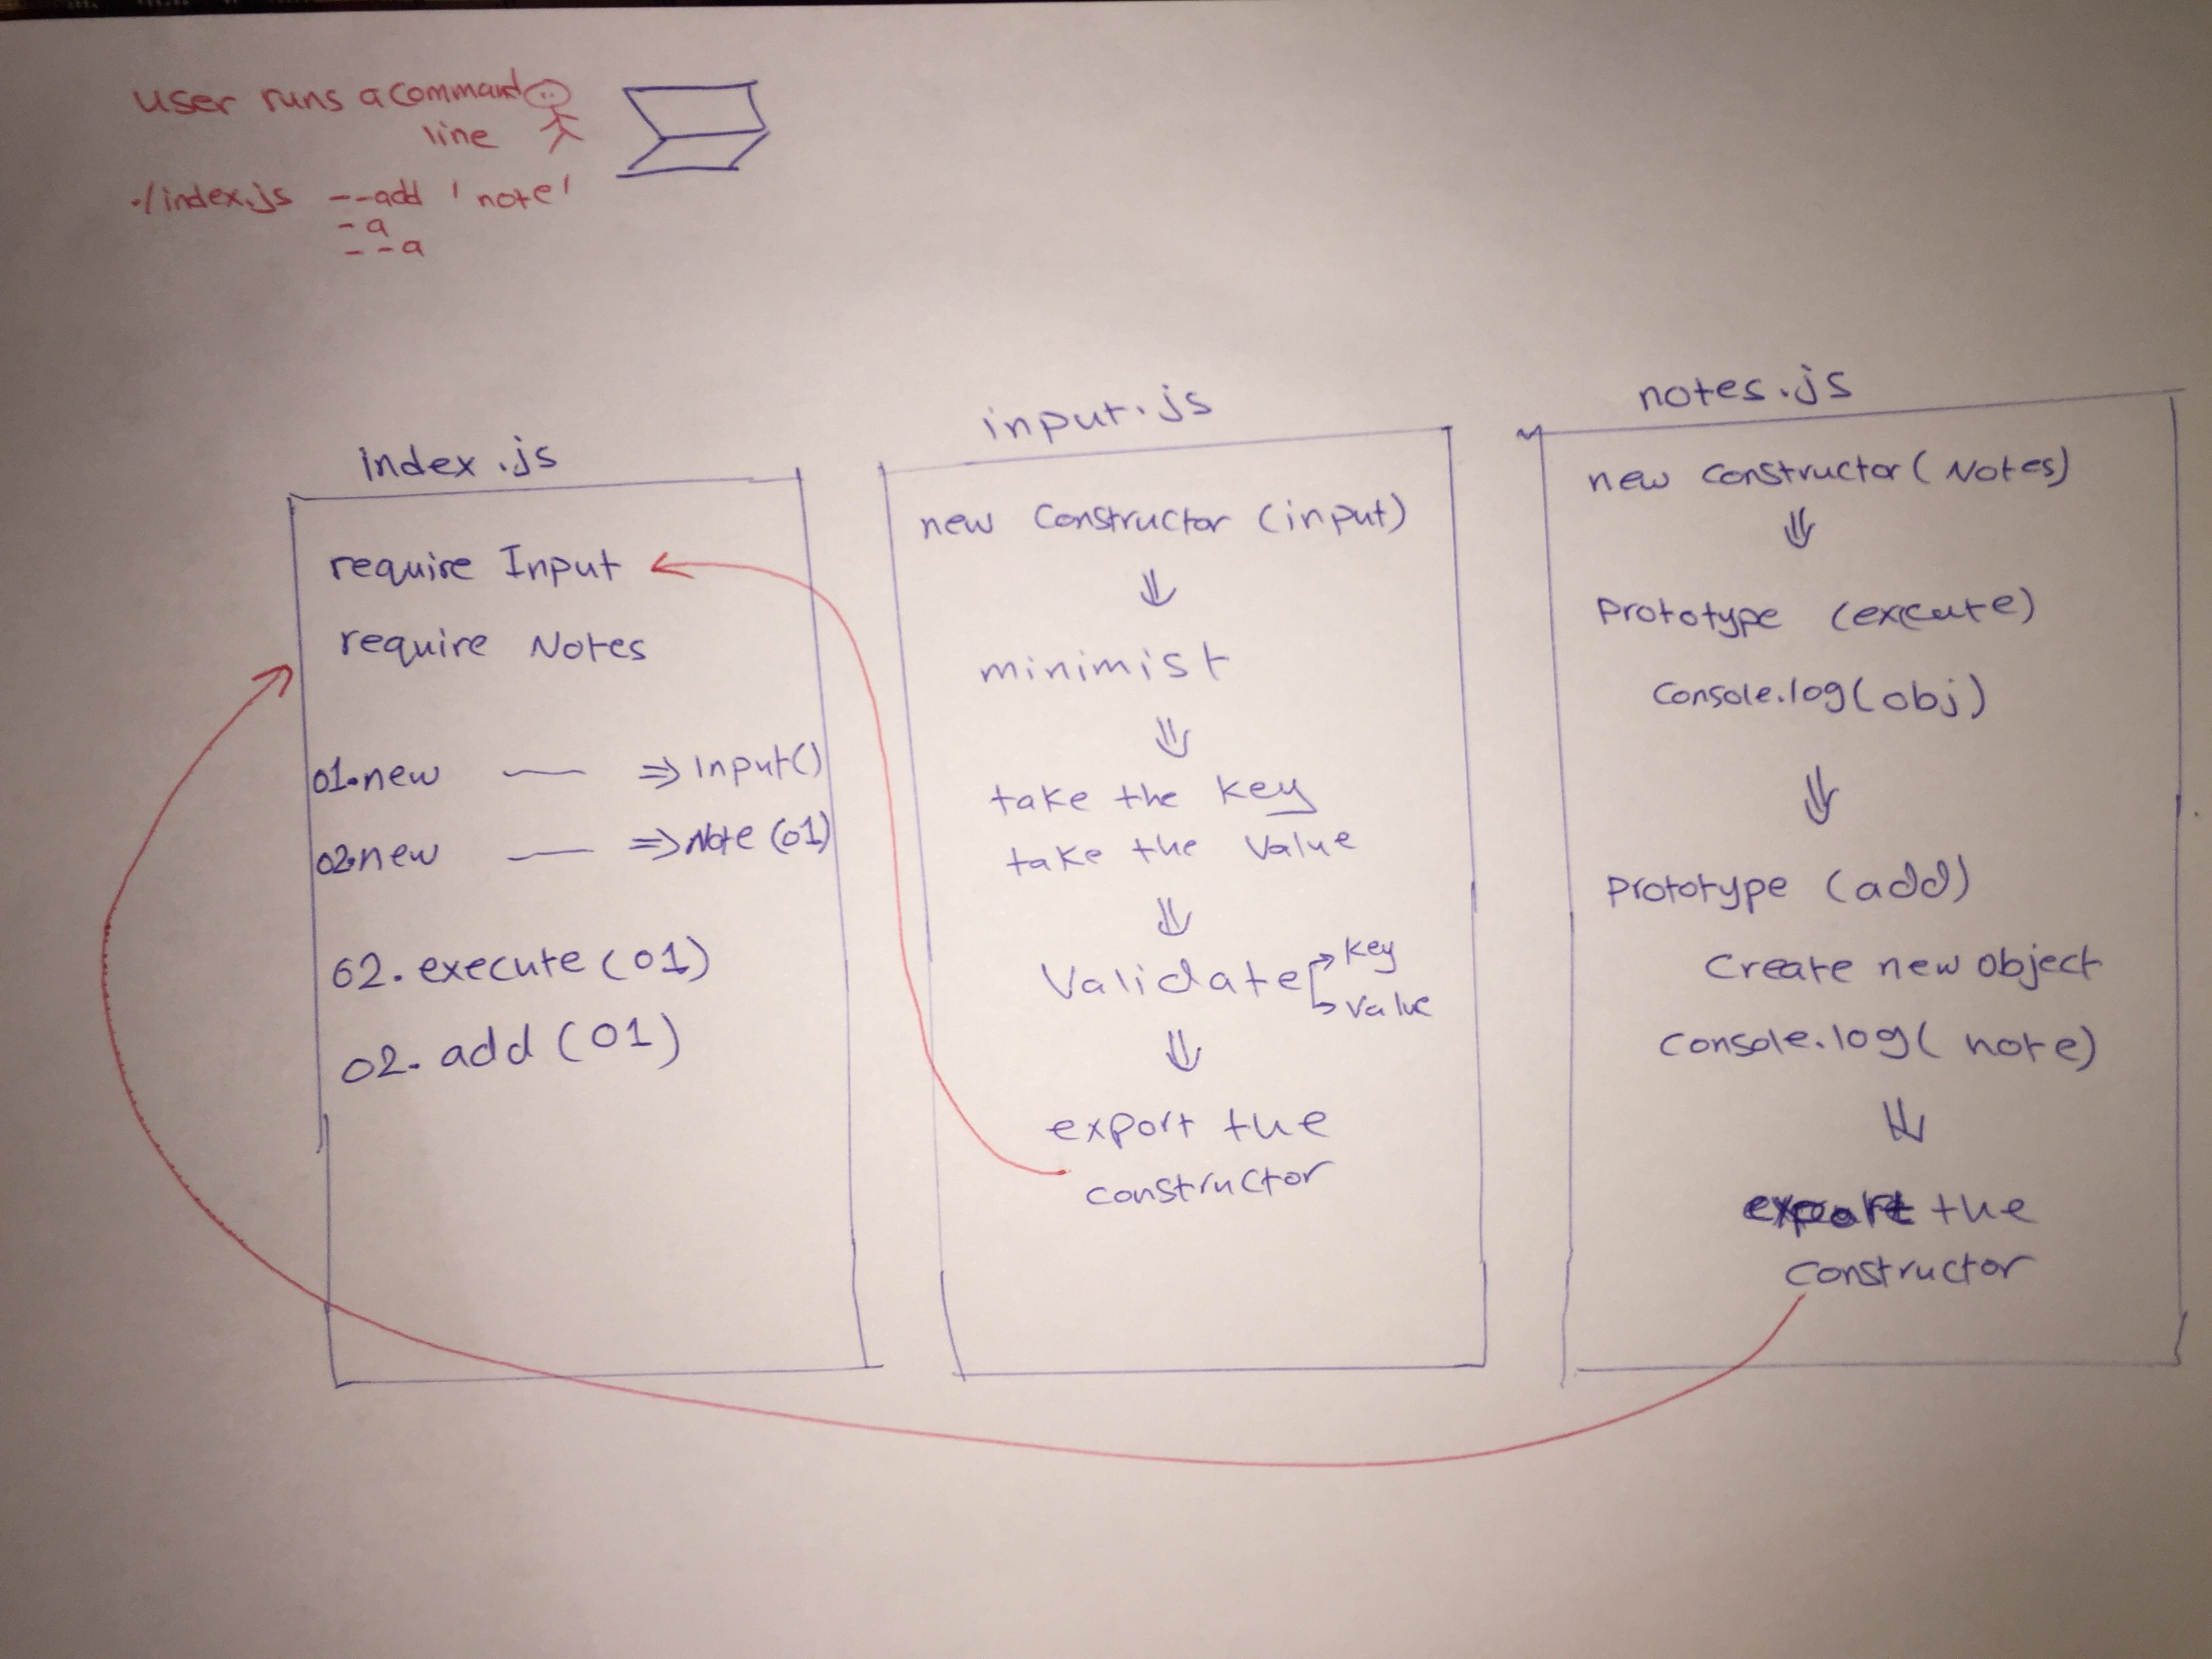 user runs a command
line
./index.js --add 'note'
-a
--a
index.js
require Input
require Notes
o1.new — => input()
o2.new — => Note (o1)
o2.execute (o1)
o2.add (o1)
input.js
new constructor (input)
⇓
minimist
⇓
take the key
take the value
⇓
Validate → key
↳ value
⇓
export the
constructor
notes.js
new constructor (Notes)
⇓
prototype (execute)
console.log(obj)
⇓
prototype (add)
Create new object
console.log( note)
⇓
export the
constructor